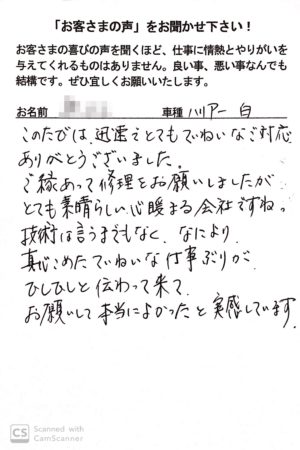 「お客さまの声」をお聞かせ下さい！
お客さまの喜びの声を聞くほど、仕事に情熱とやりがいを
与えてくれるものはありません。良い事、悪い事なんでも
結構です。ぜひ宜しくお願いいたします。
お名前 車種 ハリアー 白
このたびは、迅速でとてもていねいなご対応
ありがとうございました。
ご縁あって修理をお願いしましたが
とても素晴らしい心暖まる会社ですねっ
技術は言うまでもなく、なにより、
真心こめたていねいな仕事ぶりが、
ひしひしと伝わって来て、
お願いして本当によかったと実感しています。
CS Scanned with
CamScanner